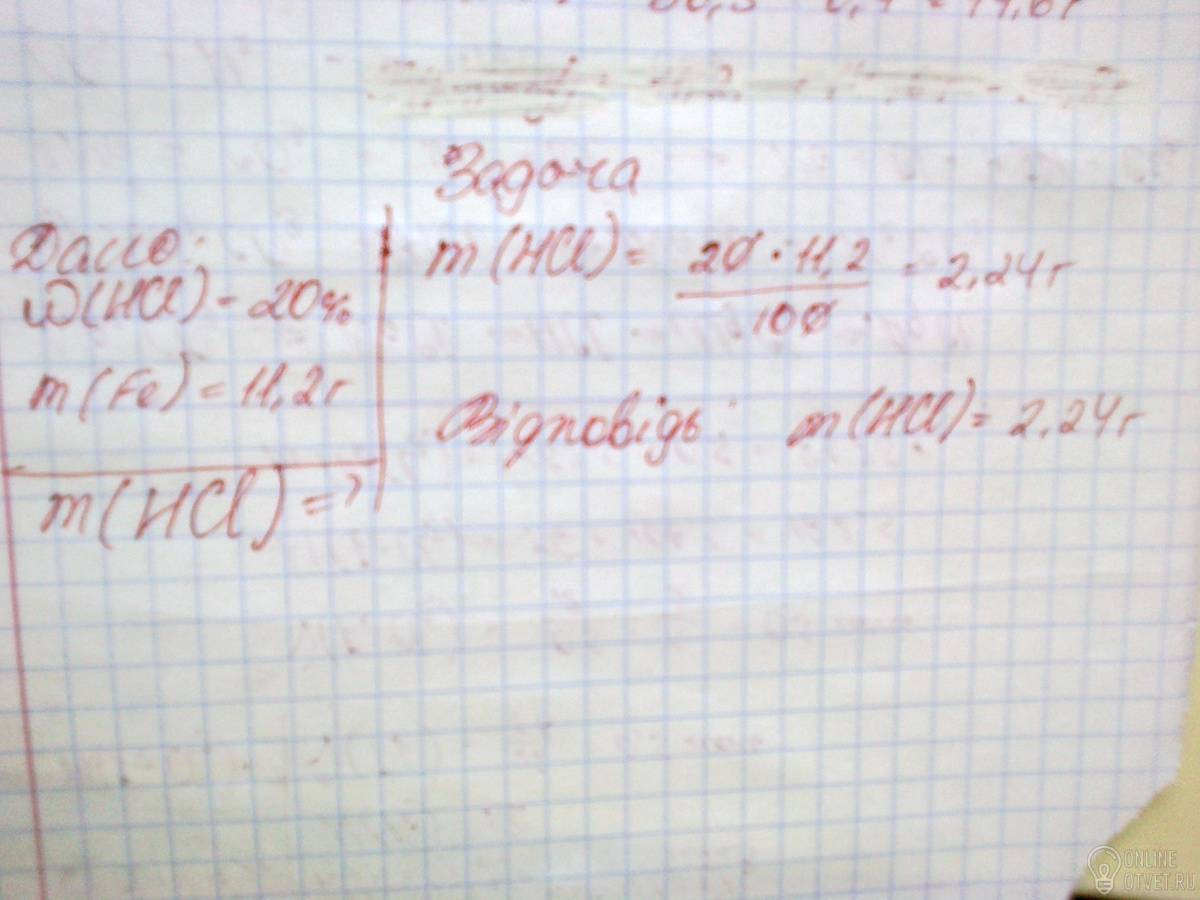 Задача
Дано:
ω(HCl) - 20%
m(Fe) = 11,2г
m(HCl) = ?
m(HCl) = 20 · 11,2 / 100 = 2,24г
Відповідь: m(HCl) = 2.24г
ONLINE
OTVET.RU